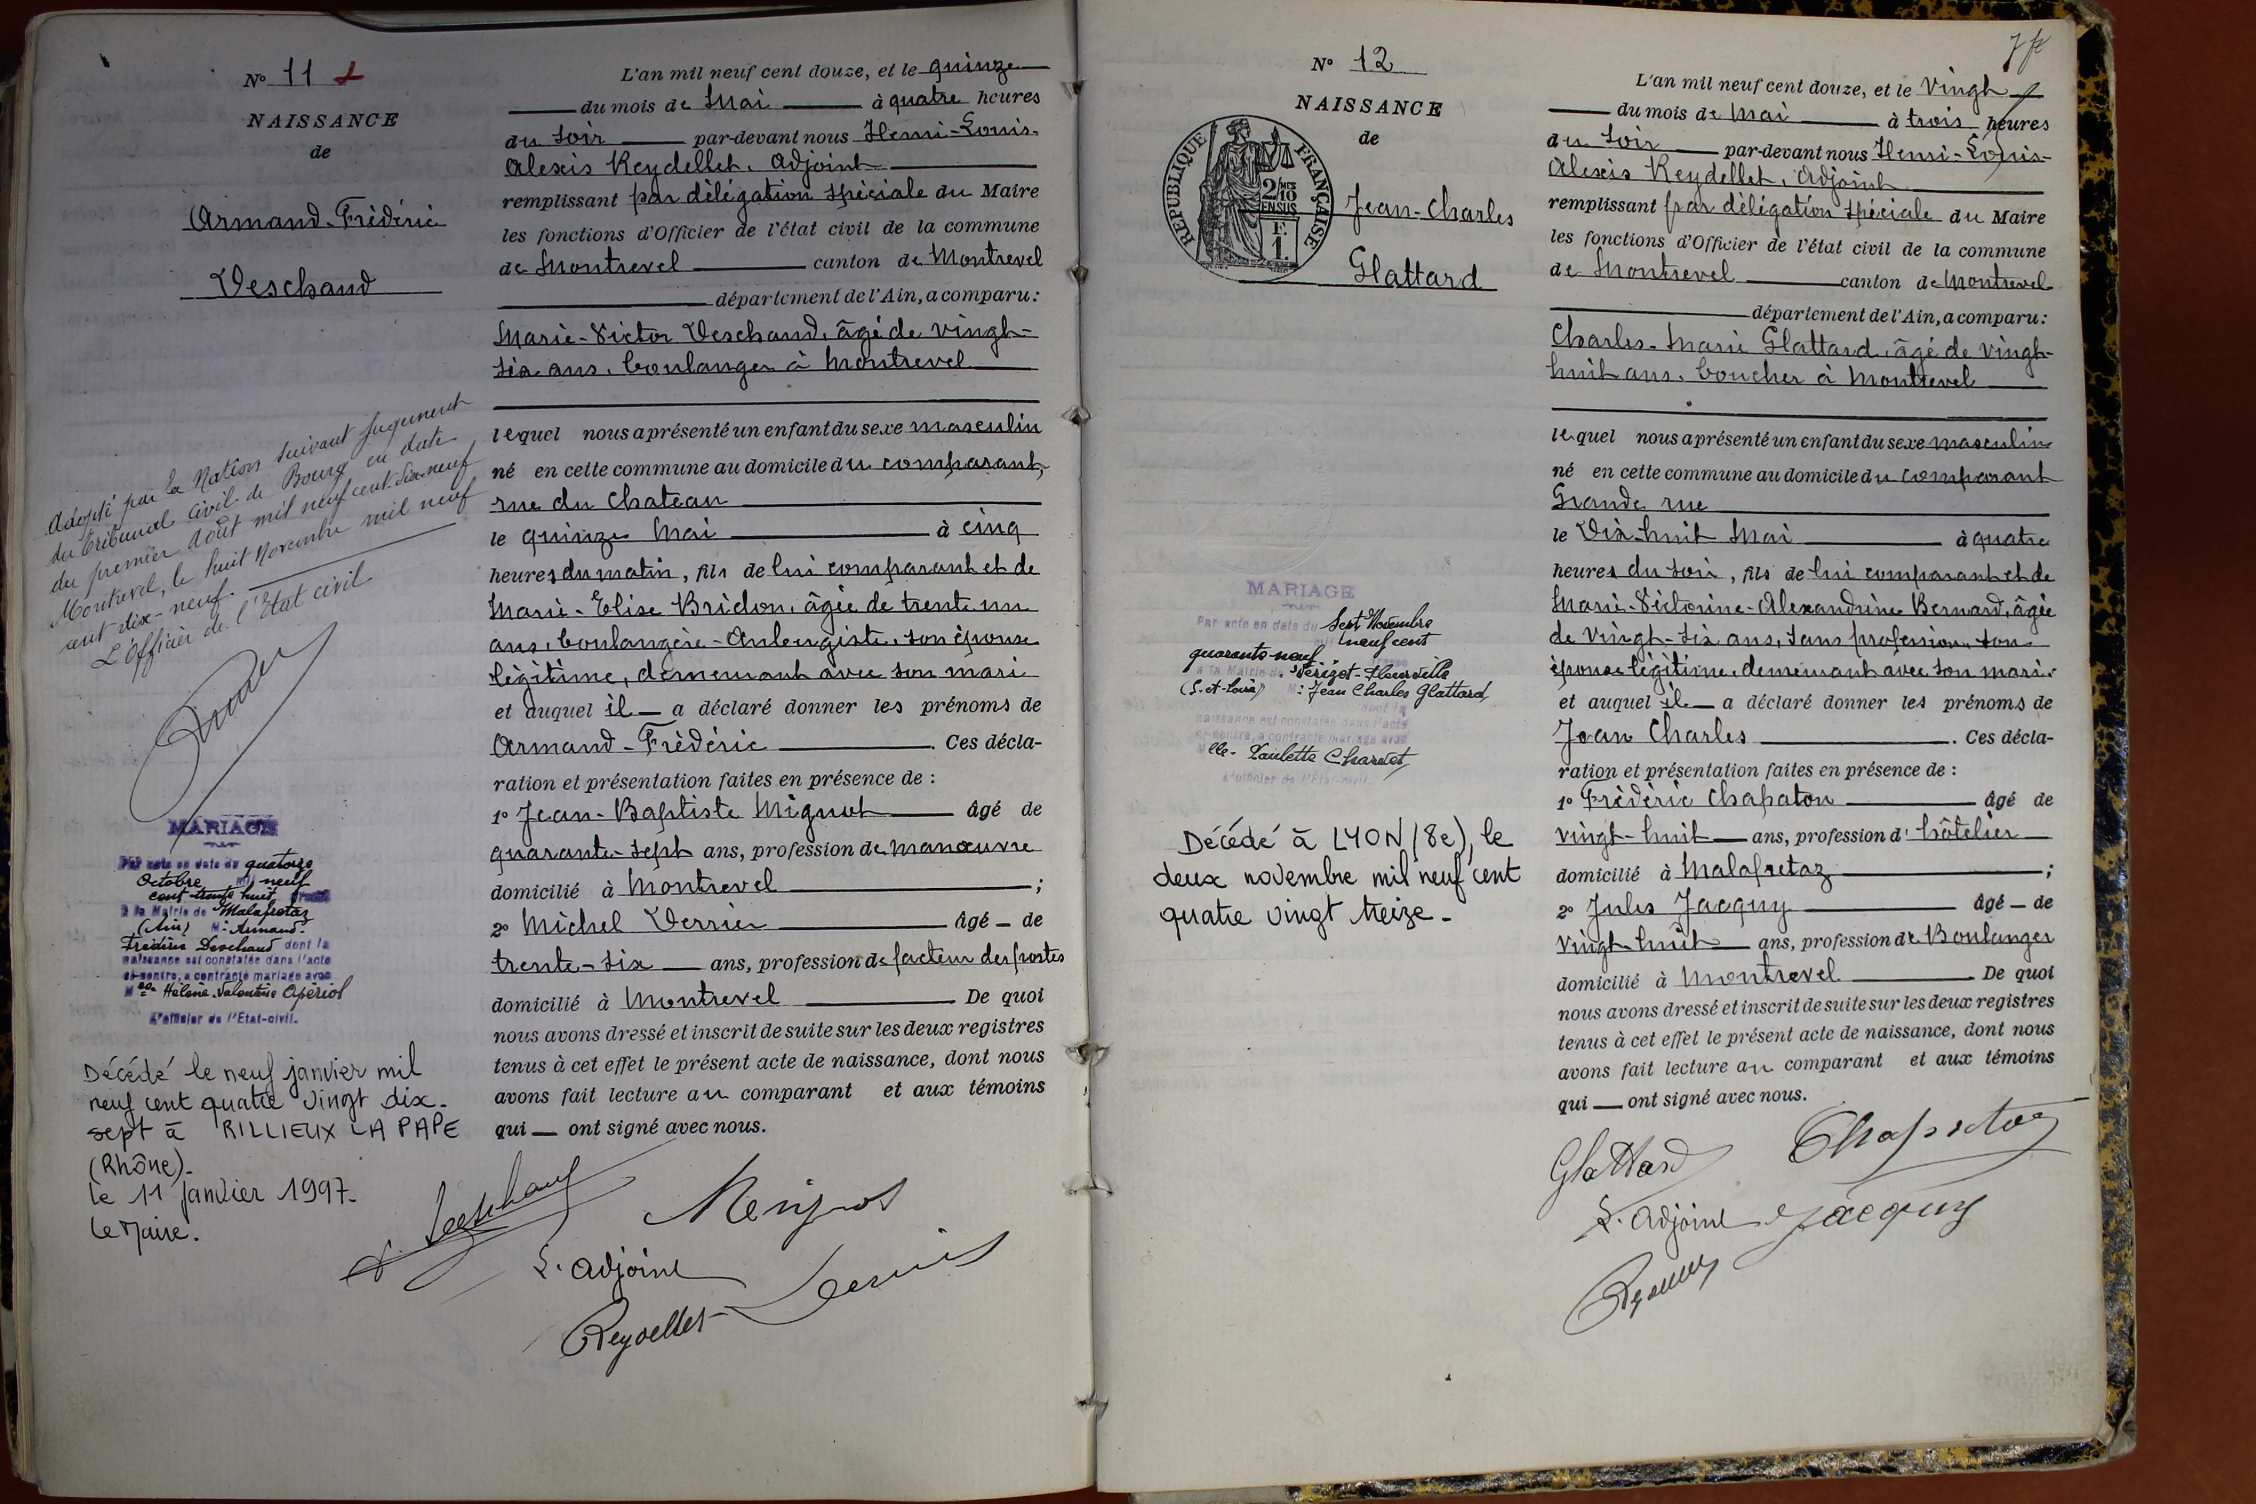 N° 11
NAISSANCE
de
Armand-Frédéric
Deschaud
Adopté par la Nation suivant jugement
du Tribunal civil de Bourg en date
du premier août mil neuf cent dix-neuf
Montrevel, le huit Novembre mil neuf
cent dix-neuf.
L'Officier de l'Etat civil
MARIAGE
Par acte en date du quatorze
Octobre mil neuf
cent trente huit
à la Mairie de Malafretaz
(Ain) M. Armand-
Frédéric Deschaud dont la
naissance est constatée dans l'acte
ci-contre, a contracté mariage avec
Hélène Valentine Apériol
L'officier de l'Etat-civil.
Décédé le neuf janvier mil
neuf cent quatre vingt dix-
sept à RILLIEUX LA PAPE
(Rhône).
le 11 janvier 1997.
Le Maire.
L'an mil neuf cent douze, et le quinze
du mois de Mai à quatre heures
du soir par-devant nous Henri-Louis-
Alexis Reydellet, Adjoint
remplissant par délégation spéciale du Maire
les fonctions d'Officier de l'état civil de la commune
de Montrevel canton de Montrevel
département de l'Ain, a comparu:
Marie-Victor Deschaud, âgé de vingt-
six ans, boulanger à Montrevel
lequel nous a présenté un enfant du sexe masculin
né en cette commune au domicile du comparant,
rue du Chateau
le quinze Mai à cinq
heures du matin, fils de lui comparant et de
Marie-Elise Bridon, âgée de trente un
ans, boulangère-Aubergiste, son épouse
légitime, demeurant avec son mari
et auquel il a déclaré donner les prénoms de
Armand-Frédéric. Ces décla-
ration et présentation faites en présence de :
1° Jean-Baptiste Mignot âgé de
quarante-sept ans, profession de manœuvre
domicilié à Montrevel ;
2° Michel Verrier âgé de
trente-six ans, profession de facteur des postes
domicilié à Montrevel De quoi
nous avons dressé et inscrit de suite sur les deux registres
tenus à cet effet le présent acte de naissance, dont nous
avons fait lecture au comparant et aux témoins
qui ont signé avec nous.
L'adjoint
Reydellet
N° 12
NAISSANCE
de
RÉPUBLIQUE FRANÇAISE
2/10
EN SUS
F.
1.
Jean-Charles
Glattard
MARIAGE
Par acte en date du Sept Novembre
mil neuf cent
quarante-neuf
à la Mairie de
(S.-et-Loire) M. Jean Charles Glattard
dont la
naissance est constatée dans l'acte
ci-contre, a contracté mariage avec
Melle Paulette
L'officier de l'Etat-civil.
Décédé à LYON (8e), le
deux novembre mil neuf cent
quatre vingt treize.
L'an mil neuf cent douze, et le vingt
du mois de Mai à trois heures
du soir par-devant nous Henri-Louis-
Alexis Reydellet, Adjoint
remplissant par délégation spéciale du Maire
les fonctions d'Officier de l'état civil de la commune
de Montrevel canton de Montrevel
département de l'Ain, a comparu:
Charles-Marie Glattard, âgé de vingt-
huit ans, boucher à Montrevel
lequel nous a présenté un enfant du sexe masculin
né en cette commune au domicile du comparant
Grande rue
le Dix-huit Mai à quatre
heures du soir, fils de lui comparant et de
Marie-Victorine-Alexandrine Bernard, âgée
de vingt-six ans, sans profession, son
épouse légitime, demeurant avec son mari.
et auquel il a déclaré donner les prénoms de
Jean Charles. Ces décla-
ration et présentation faites en présence de :
1° Frédéric Chapaton âgé de
vingt-huit ans, profession d'hôtelier
domicilié à Malafretaz ;
2° Jules Jacquy âgé de
vingt-huit ans, profession de Boulanger
domicilié à Montrevel De quoi
nous avons dressé et inscrit de suite sur les deux registres
tenus à cet effet le présent acte de naissance, dont nous
avons fait lecture au comparant et aux témoins
qui ont signé avec nous.
Glattard Chapaton
L'adjoint Jacquy